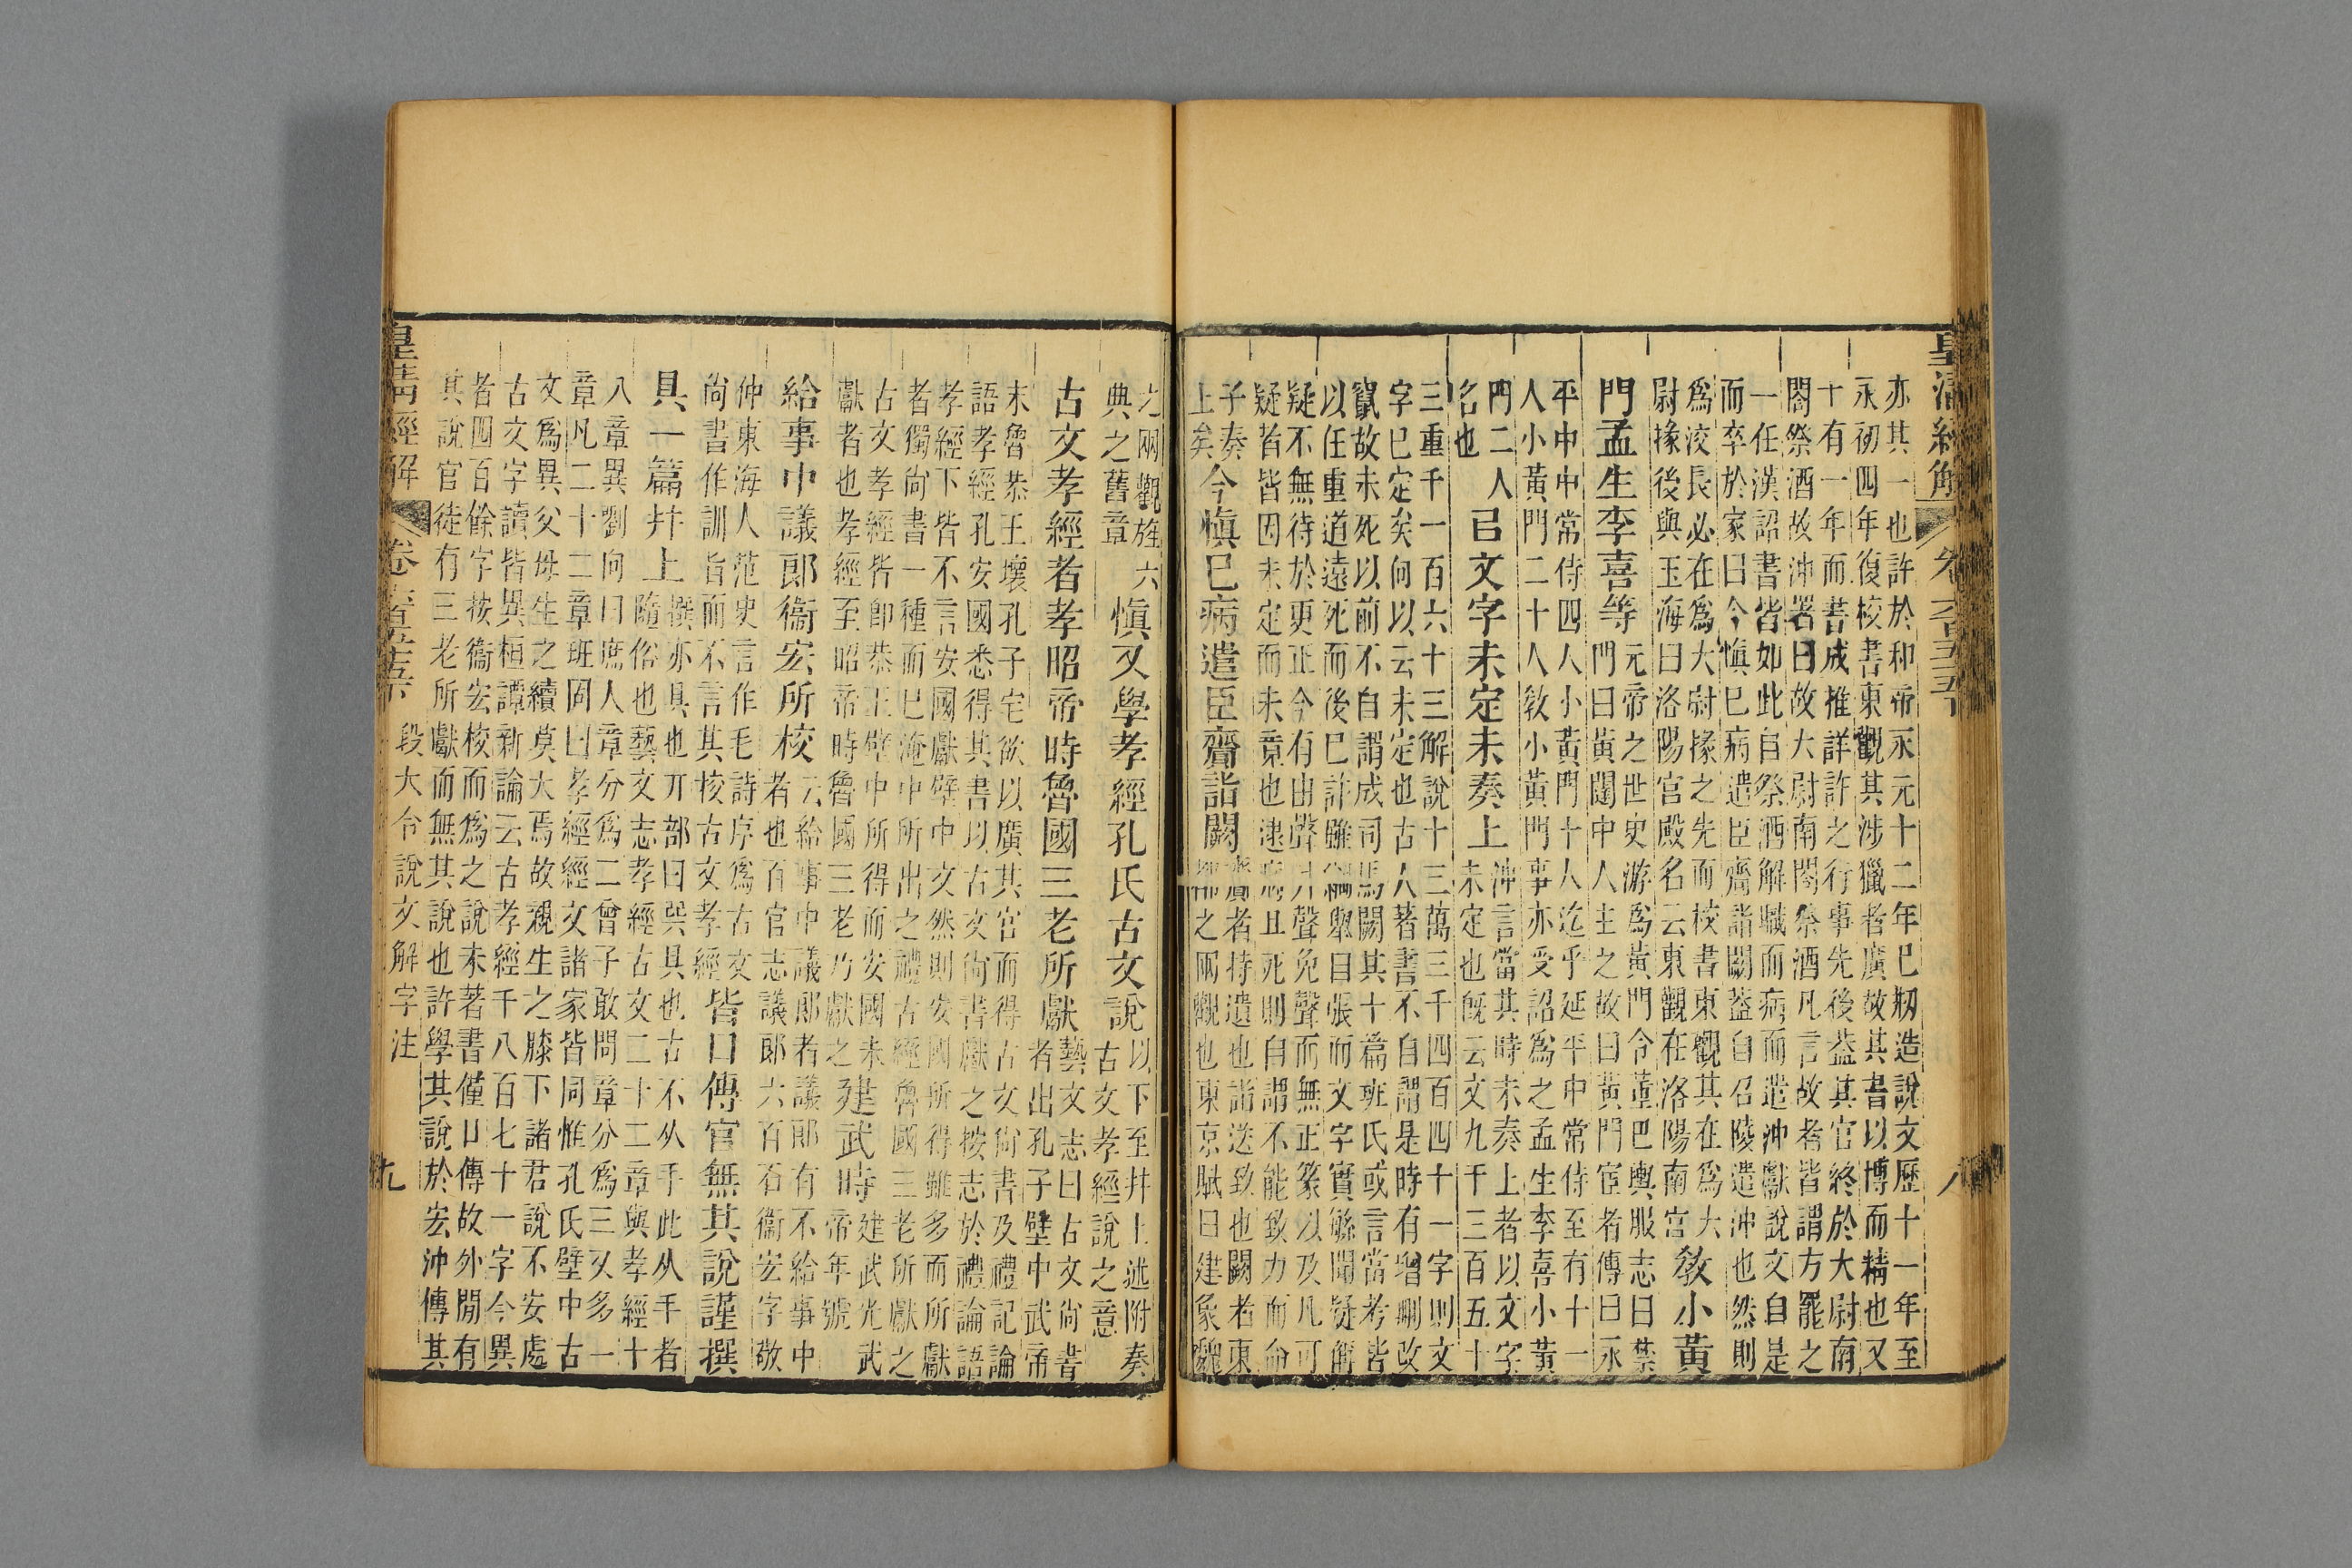 皇清經解 卷六百五十五下 八
亦其一也許於和帝永元十二年巳剏造說文歷十一年至
永初四年復校書東觀其涉獵者廣故其書以博而精也又
十有一年而書成推詳許之行事先後葢其官終於大尉南
閣祭酒故沖署曰故大尉南閣祭酒凡言故者皆謂方罷之
一任漢詔書皆如此自祭酒解職而病而遣沖獻說文自是
而卒於家曰今愼巳病遣臣齎詣闕葢自召陵遣沖也然則
爲洨長必在爲大尉掾之先而校書東觀其在爲大
尉掾後與玉海曰洛陽宮殿名云東觀在洛陽南宮
敎小黃
門孟生李喜等
元帝之世史游爲黃門令董巴輿服志曰禁
門曰黃闥中人主之故曰黃門宦者傳曰永
平中中常侍四人小黃門十人迄乎延平中常侍至有十一
人小黃門二十人敎小黃門事亦受詔爲之孟生李喜小黃
門二人
名也
巳文字未定未奏上
沖言當其時未奏上者以文字
未定也旣云文九千三百五十
三重千一百六十三解說十三萬三千四百四十一字則文
字巳定矣何以云未定也古人著書不自謂是時有增刪改
竄故未死以前不自謂成司馬闕其十篇班氏或言當考皆
以任重道遠死而後巳許雖綱舉目張而文字實緐聞疑
疑不無待於更正今有由聲爿聲免聲而無正篆以及凡可
疑者皆因未定而未竟也逮病且死則自謂不能致力而命
子奏
上矣
今愼巳病遣臣齎詣闕
齎者持遺也詣送致也闕者東
都之兩觀也東京賦曰建象魏
之兩觀旌六
典之舊章
愼又學孝經孔氏古文說
以下至幷上述附奏
古文孝經說之意
古文孝經者孝昭帝時魯國三老所獻
藝文志曰古文尙書
者出孔子壁中武帝
末魯恭王壞孔子宅欲以廣其宮而得古文尙書及禮記論
語孝經孔安國悉得其書以古文尙書獻之按志於禮論語
孝經下皆不言安國獻壁中文然則安國所得雖多而所獻
者獨尙書一種而巳淹中所出之禮古經魯國三老所獻之
古文孝經皆卽恭王壁中所得而安國未
獻者也孝經至昭帝時魯國三老乃獻之
建武時
建武光武
帝年號
給事中議郎衞宏所校
云給事中議郎者議郎有不給事中
者也百官志議郎六百石衞宏字敬
仲東海人范史言作毛詩序爲古文
尙書作訓旨而不言其校古文孝經
皆口傳官無其說謹撰
具一篇幷上
撰亦具也丌部曰巽具也古不从手此从手者
隨俗也藝文志孝經古文二十二章與孝經十
八章異劉向曰庶人章分爲二曾子敢問章分爲三又多一
章凡二十二章班固曰孝經經文諸家皆同惟孔氏壁中古
文爲異父母生之續莫大焉故親生之膝下諸君說不安處
古文字讀皆異桓譚新論云古孝經千八百七十一字今異
者四百餘字按衞宏校而爲之說未著書僅口傳故外閒有
其說官徒有三老所獻而無其說也許學其說於宏沖傳其
皇清經解 卷六百五十五下 段大令說文解字注 九